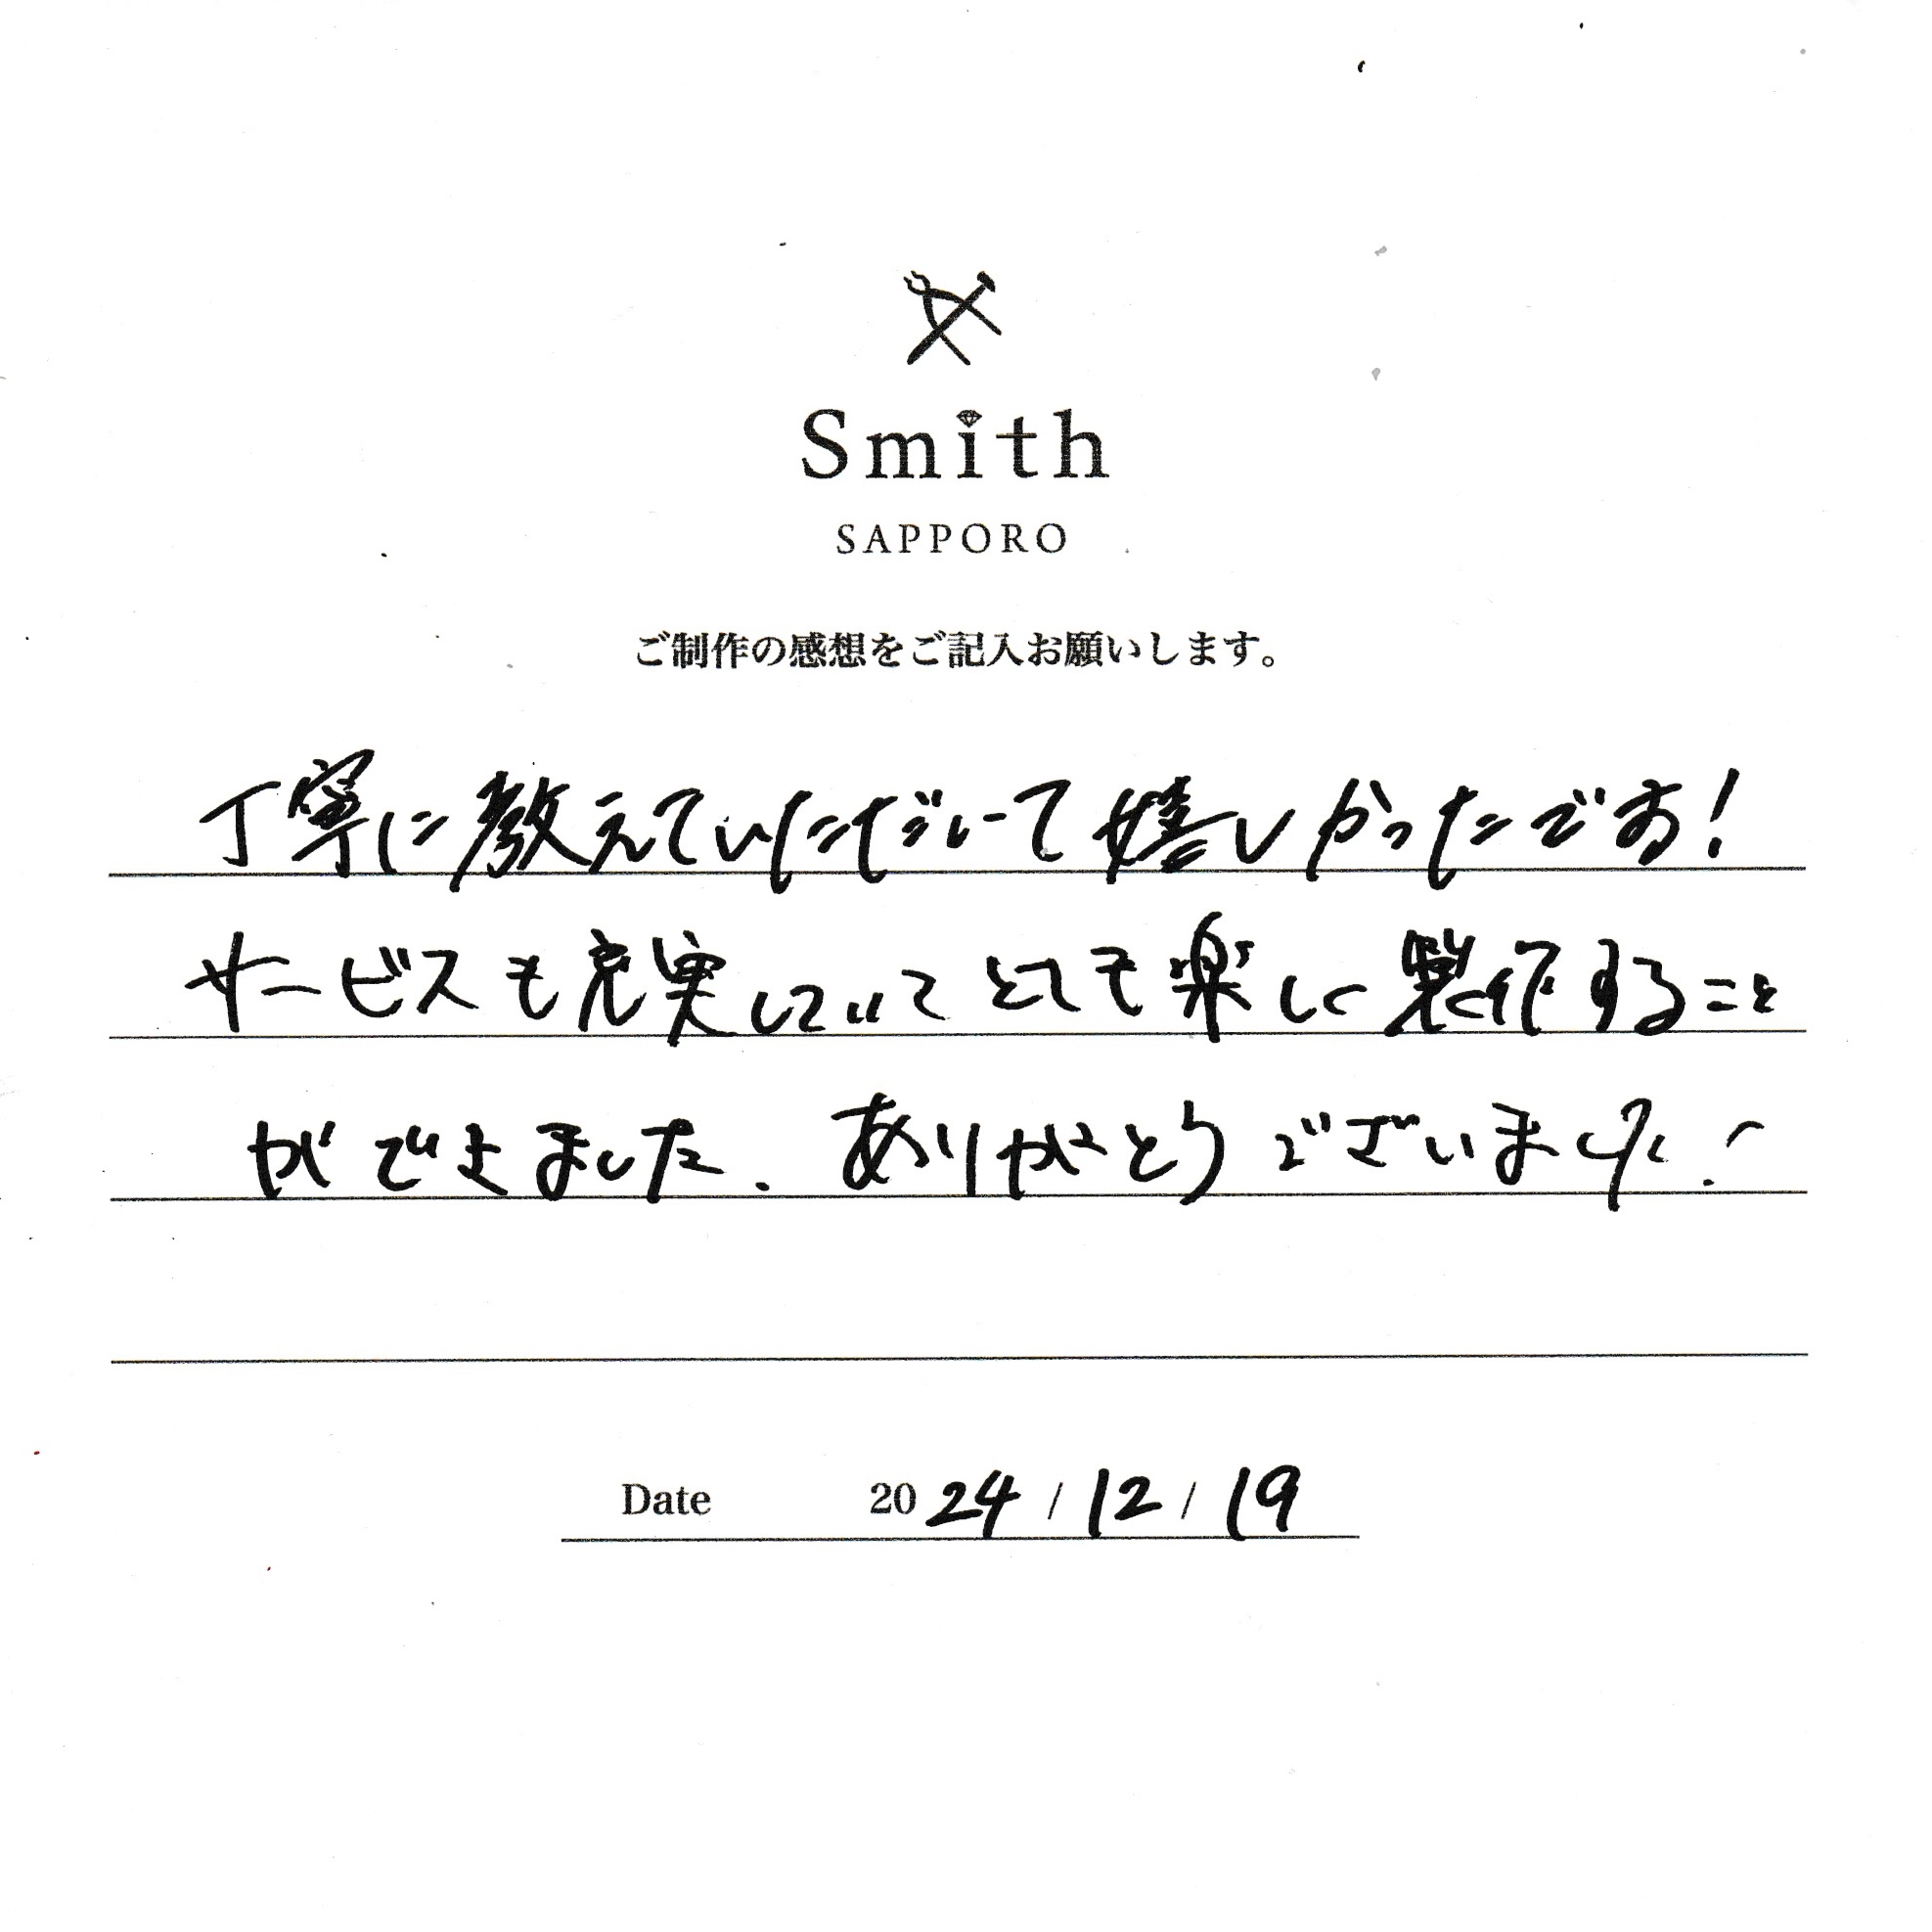 Smith
SAPPORO
ご制作の感想をご記入お願いします。
丁寧に教えていただいて嬉しかったです!
サービスも充実していてとても楽しく製作すること
ができました. ありがとうございました!
Date 2024 / 12 / 19